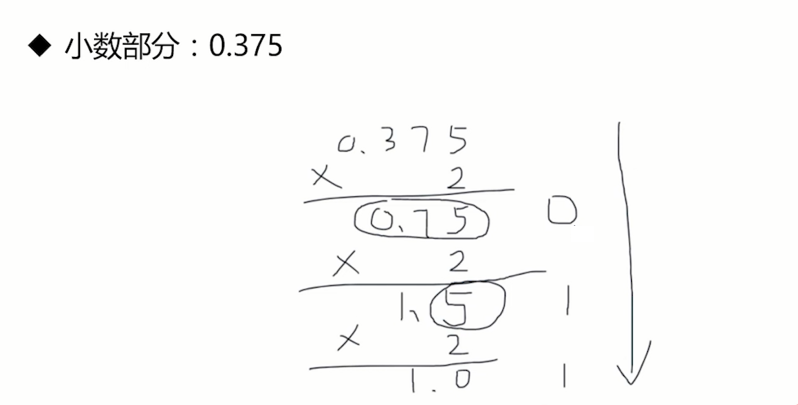 ◆ 小数部分：0.375
0.375
× 2
0.75 0
× 2
1.5 1
× 2
1.0 1